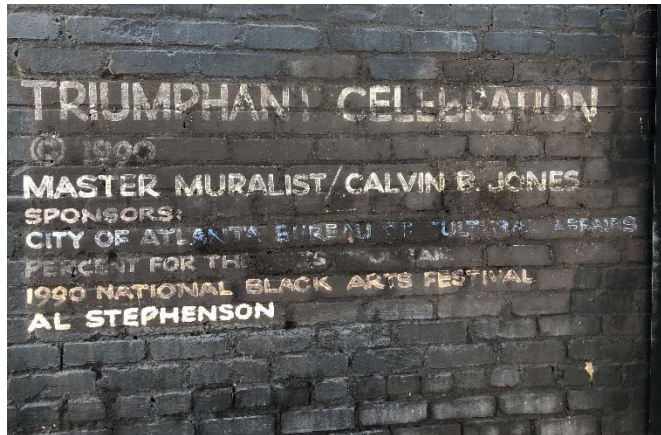 TRIUMPHANT CELEBRATION
© 1990
MASTER MURALIST/CALVIN B. JONES
SPONSORS:
CITY OF ATLANTA BUREAU OF CULTURAL AFFAIRS
PERCENT FOR THE
1990 NATIONAL BLACK ARTS FESTIVAL
AL STEPHENSON